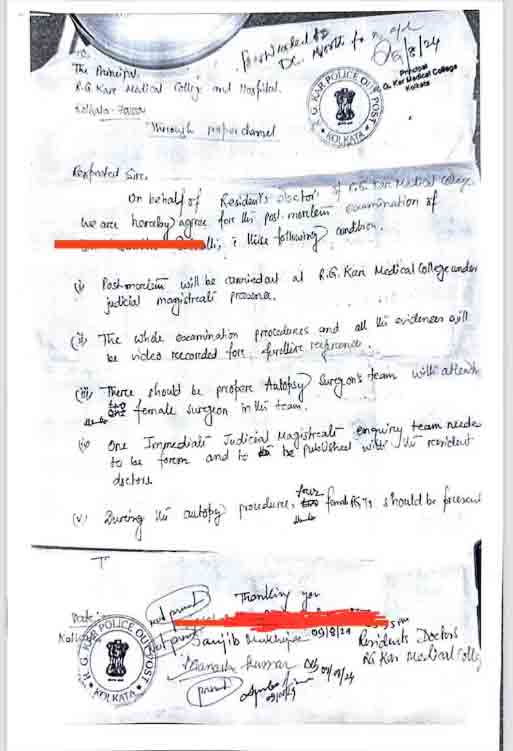 Forwarded to
DC North for n/a pls
9/8/24
Principal
R. G. Kar Medical College
Kolkata
To
The Principal
R.G. Kare Medical College and Hospital
Kolkata-
Through proper channel
R. G. KAR POLICE OUT POST
KOLKATA
Respected Sir,
On behalf of Residents Doctor of R.G. Kar Medical College
We are hereby agree fore the post-mortem examination of
these following condition.
(i) Post-mortem will be carried out at R.G. Kar Medical College under
judicial magistrate presence.
(ii) The whole examination procedures and all the evidences will
be video recorded fore further reference.
(iii) There should be propere Autopsy Surgeon's team with atleast
female surgeon in the team.
(iv) One Immediate Judicial Magistrate enquiry team needs
to be form and to be published with the resident
doctors.
(v) During the autopsy procedures, four female PGTs should be present
Thanking you
Date
Kolkata
Not present
Not present
Sanjib Mukherjee 09/8/24
Kumar 09/08/24
present
09/08/24
Residents Doctors
RG Kar Medical College
R. G. KAR POLICE OUT POST
KOLKATA